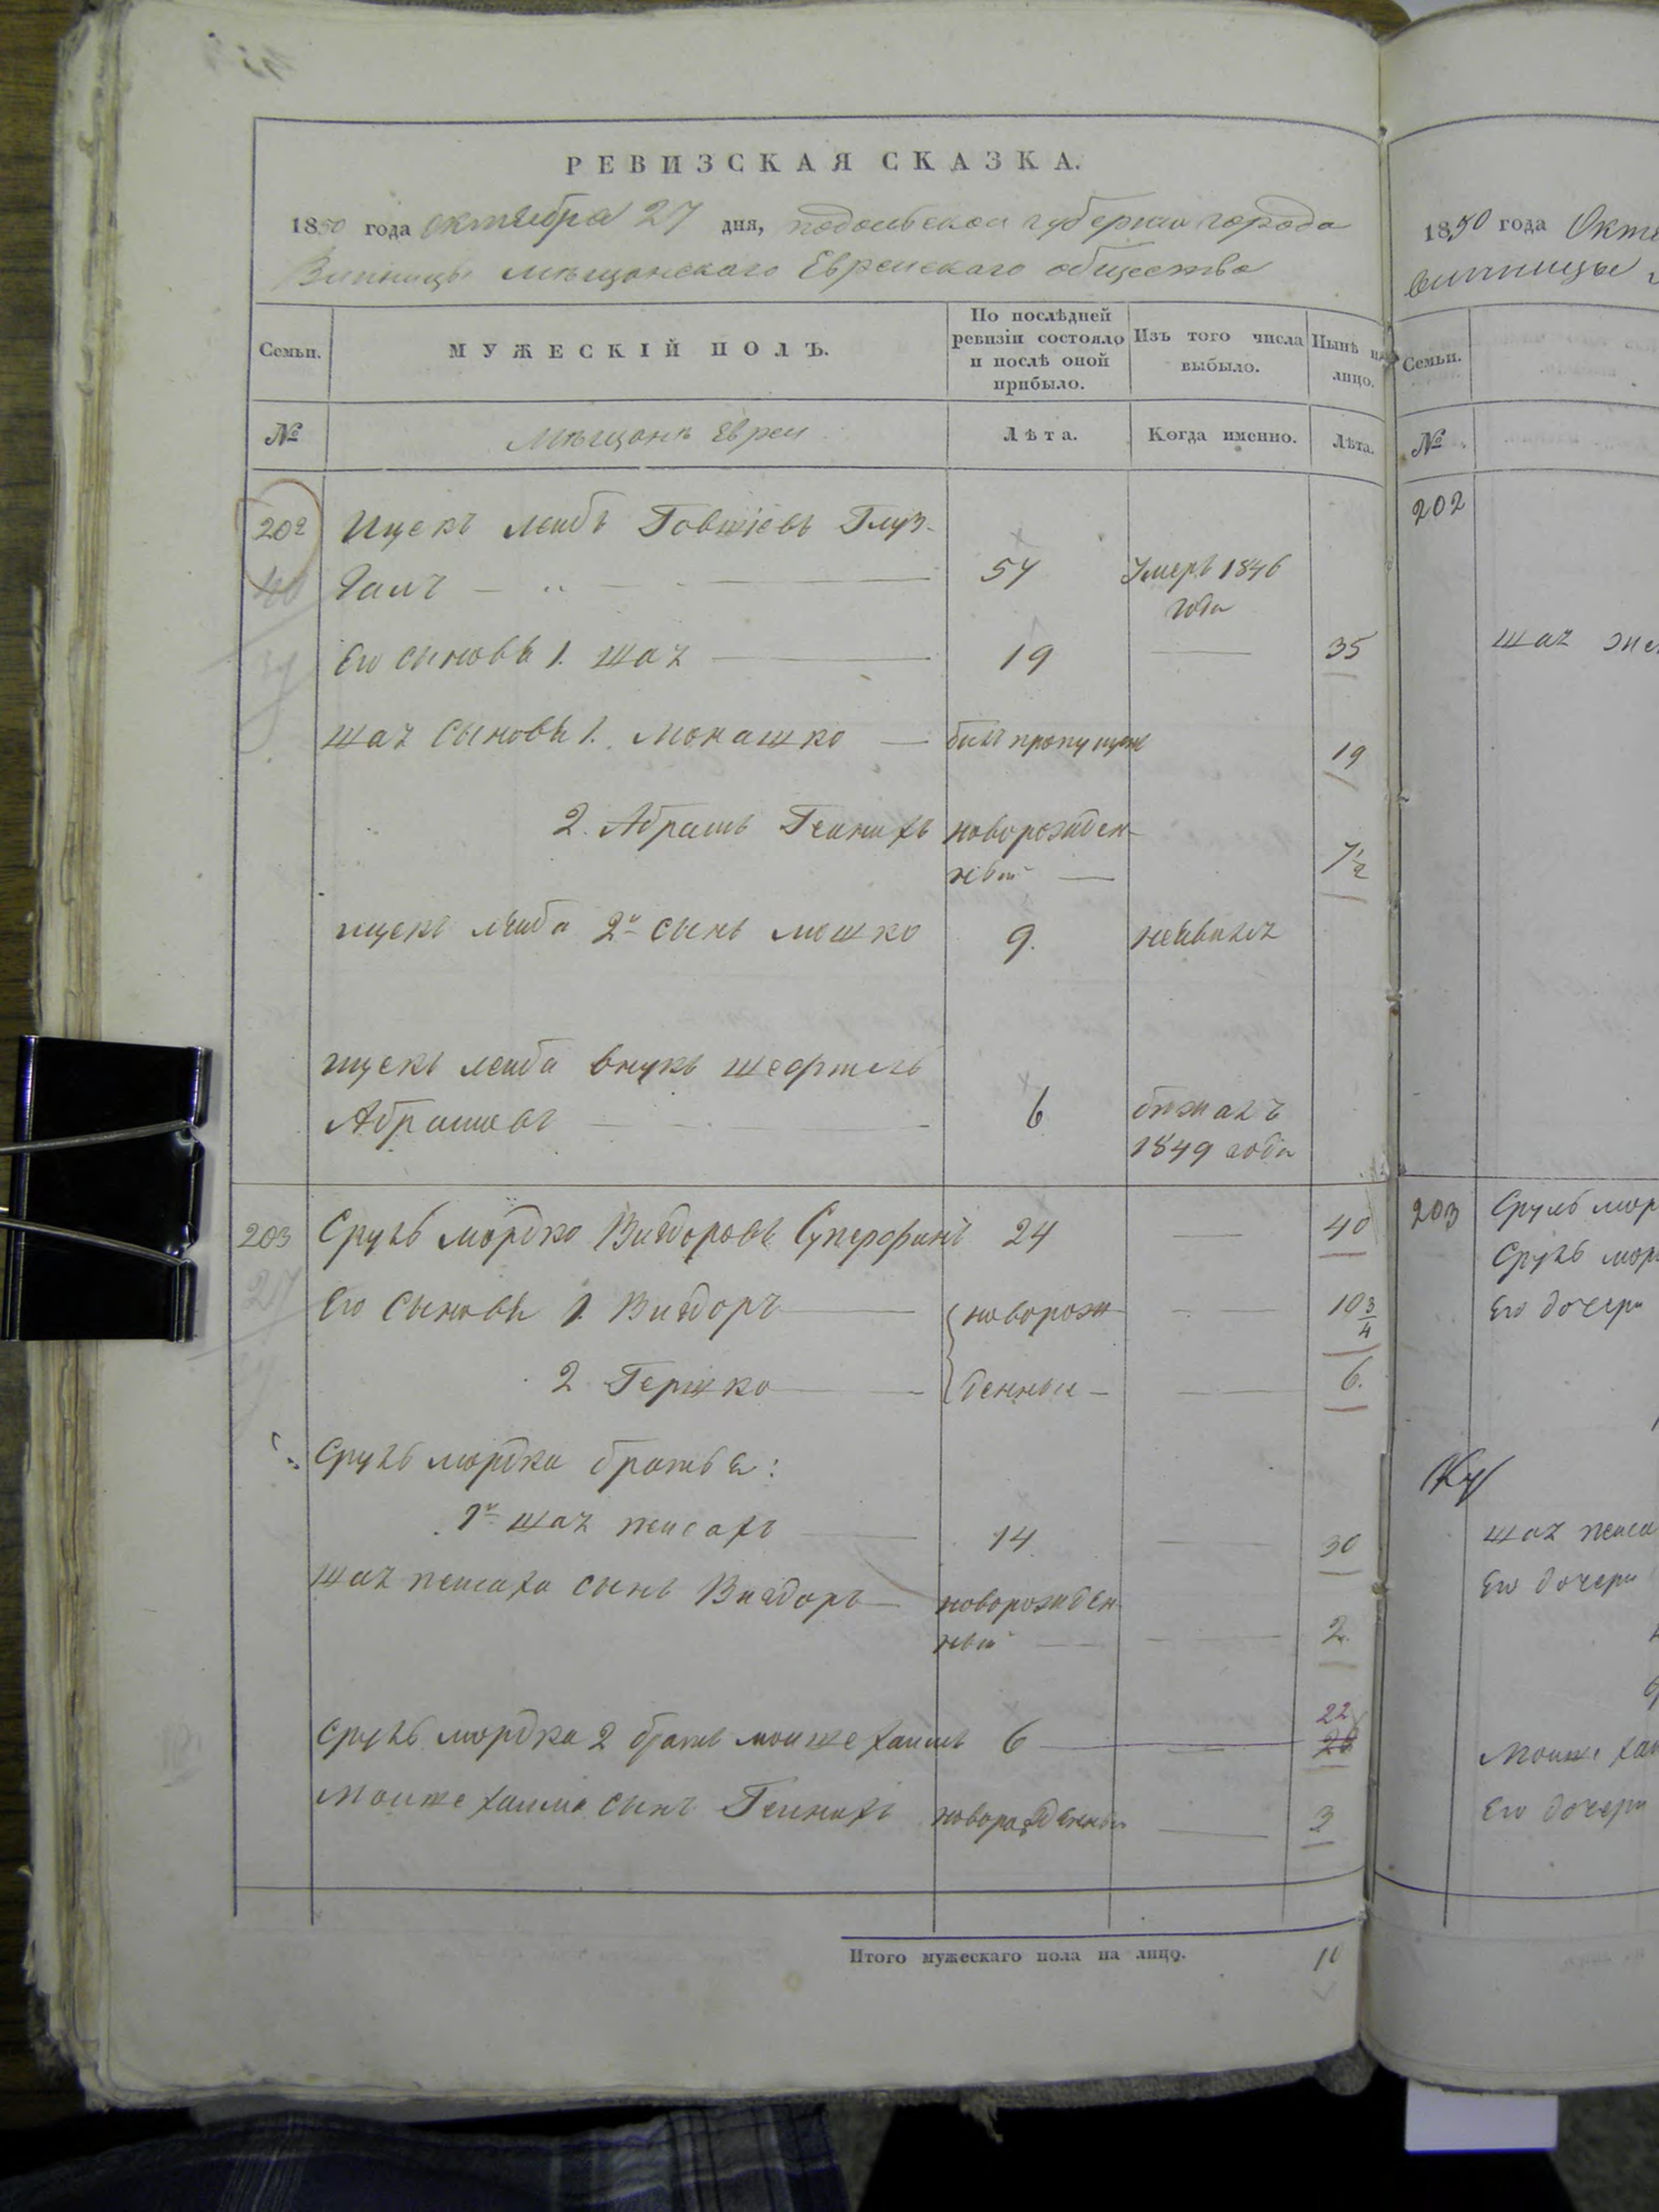 РЕВИЗСКАЯ СКАЗКА.
1850 года октября 27 дня, подольской губернии города
Винницы мѣщанскаго Еврейскаго общества
Семьи.
МУЖЕСКІЙ ПОЛЪ.
По послѣдней ревизіи состояло и послѣ оной прибыло.
Изъ того числа выбыло.
Нынѣ на лицо.
№
Мѣщанъ Евреи
Лѣта.
Когда именно.
Лѣта.
202 Ицекъ Лейбъ Говшіевъ Глуз-
галъ 54 Умеръ 1846
года
Его сыновья 1. Шаѣ 19 35
Шаѣ сыновья 1. Монашко былъ пропущен 19
2. Абрамъ Гейнихъ новорожден-
ный 7½
Ицека Лейба 2й сынъ Мошко 9.
Ицека Лейба внукъ Шефтель
Абрамовъ 6 бѣжалъ
1849 года
203 Сруль Мордко Вигдоровъ Суперфинъ 24 40
Его Сыновья 1. Вигдоръ новорож- 10 3/4
2 Гершко денныи 6.
Сруль Мордка братья:
1й Шаѣ Пейсахъ 14 30
Шаѣ Пейсаха сынъ Вигдоръ новорожден-
ный 2.
22
Сруль Мордка 2 братъ Мойше Хаимъ 6
Мойше Хаима сынъ Гейнихъ новорожденный 3
Итого мужескаго пола на лицо. 10
1850 года
винницы
Семьи.
№
202
Шаѣ
203 Сруль
Сруль
Его дочери
Шаѣ
Его дочери
Мойше
Его дочери